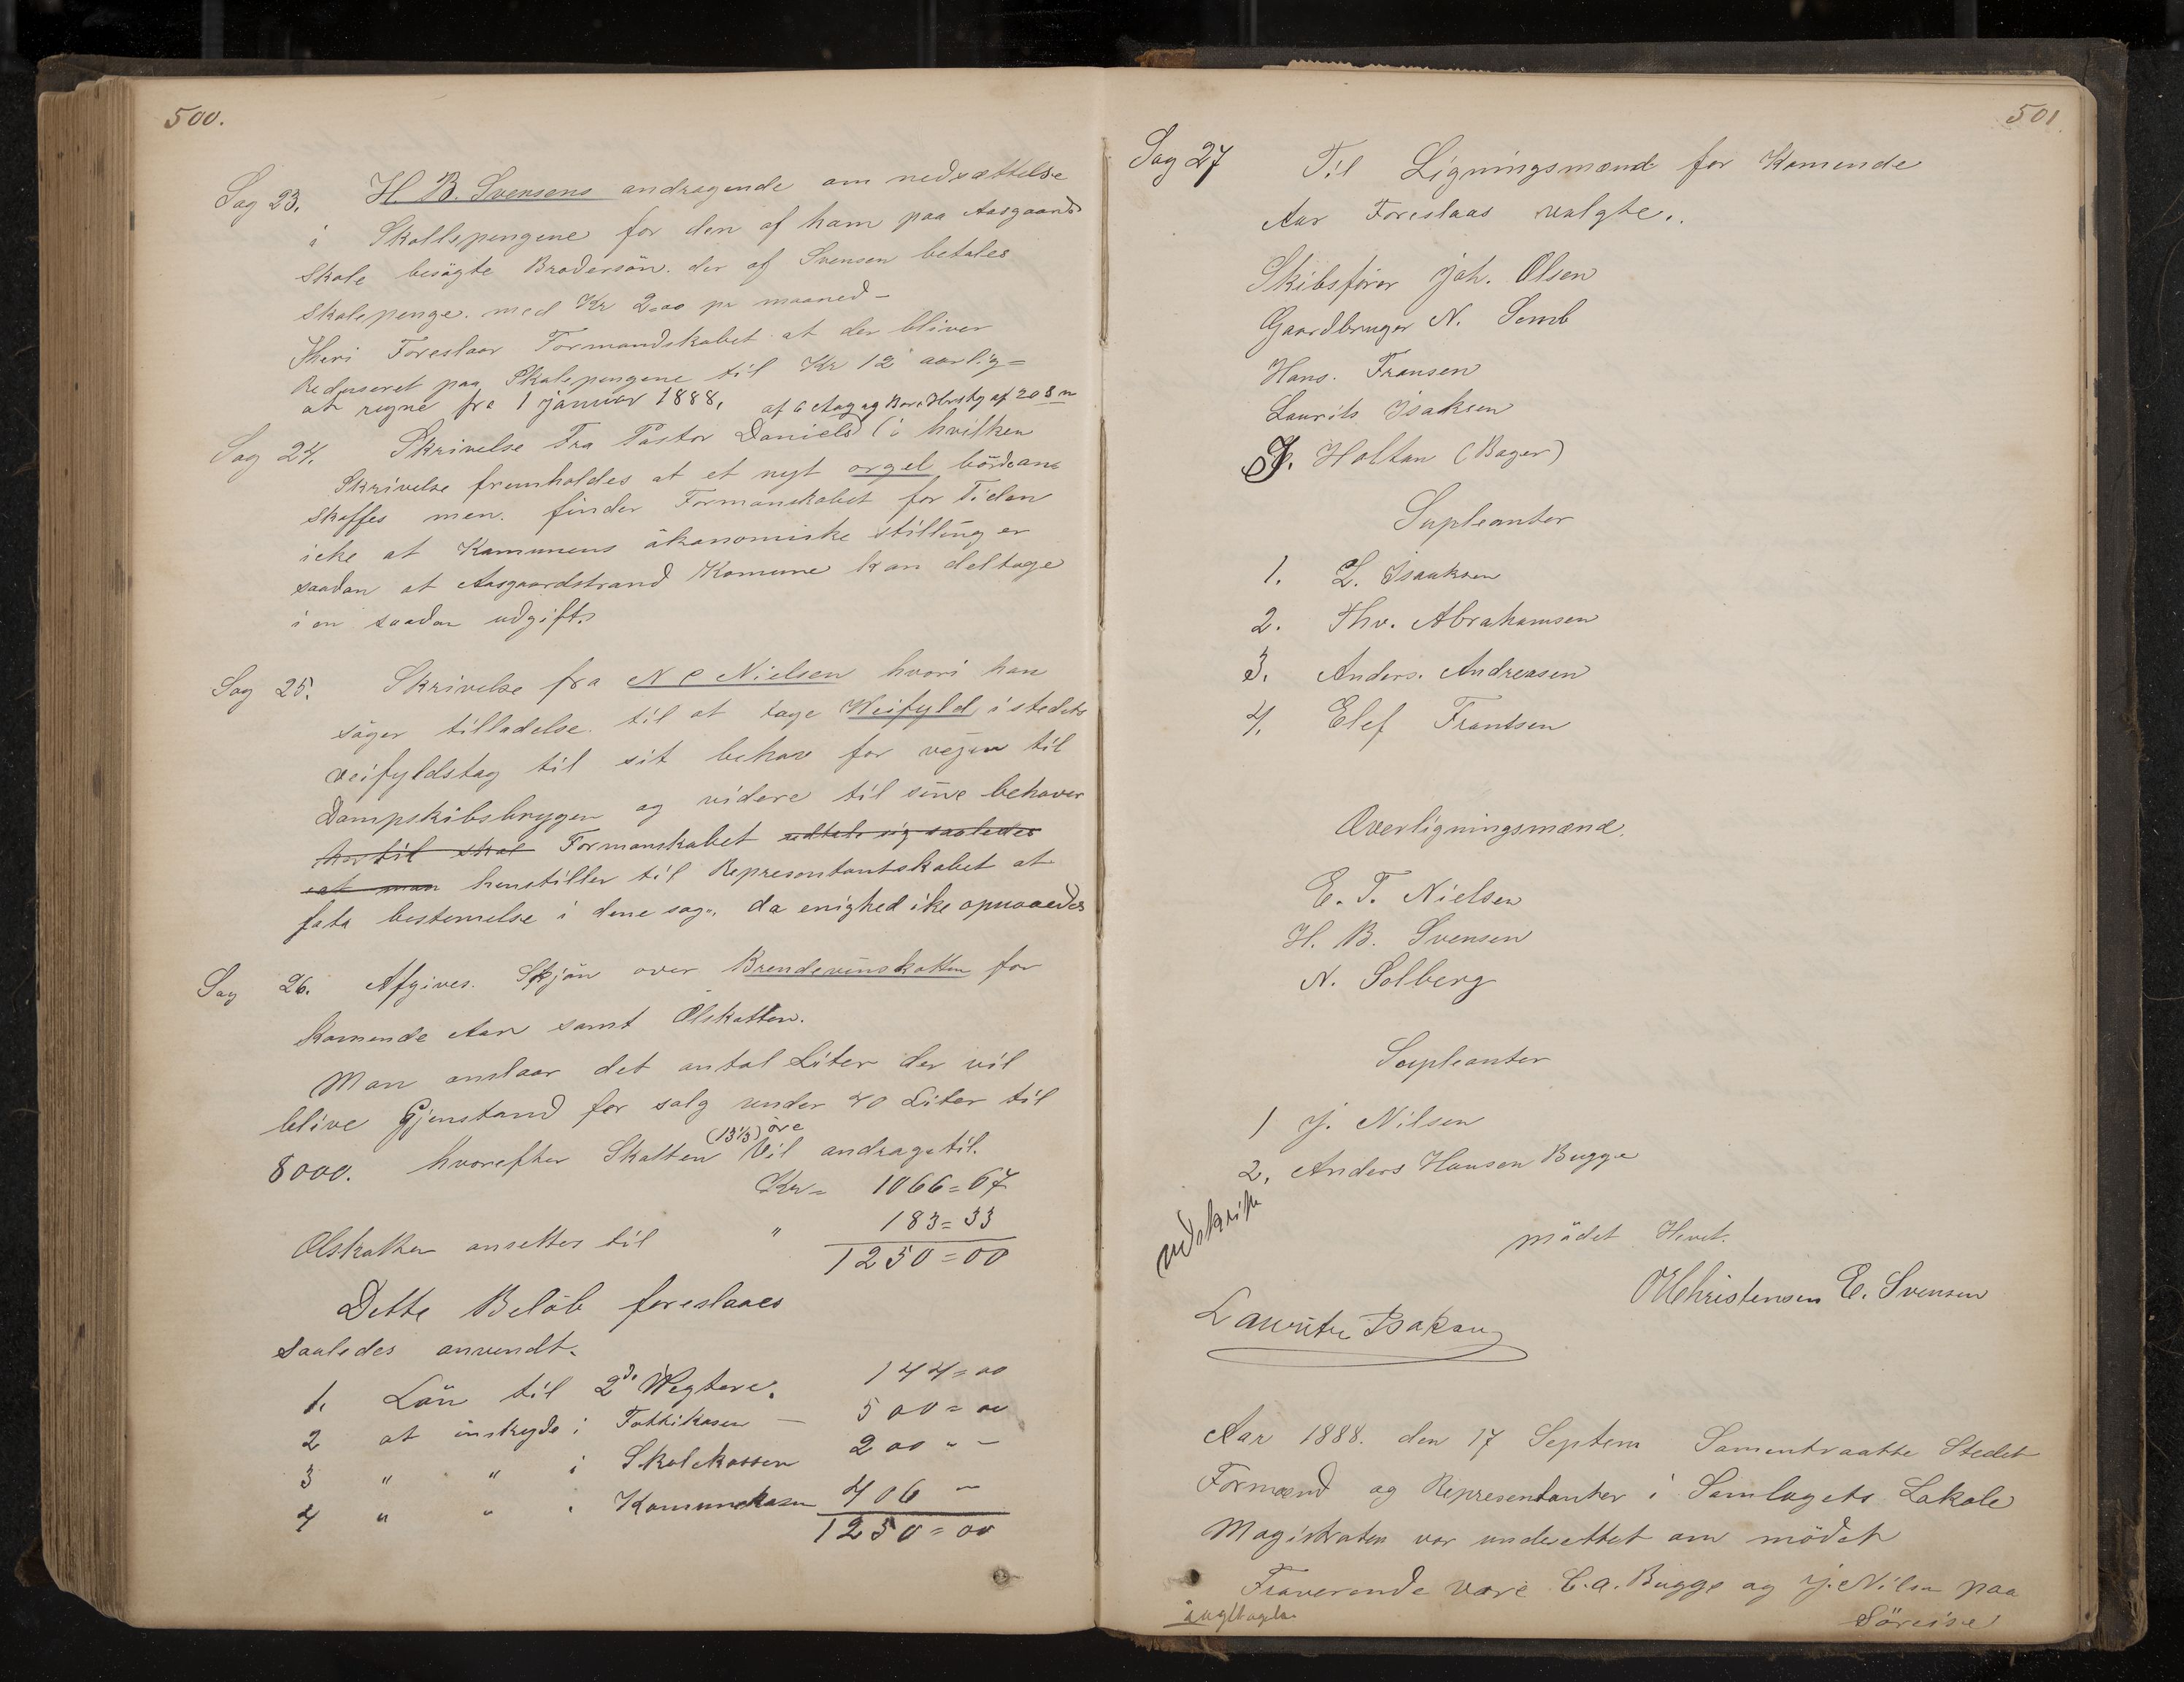 500.
Sag 23. H. B. Svensens andragende om nedsættelse
i Skollepengene for den af ham paa Aasgaards
Skole besögte Brodersön. der af Svensen betales
Skolepenge. med Kr 2.00 pr maaned -
Heri Foreslaar Formandskabet at der bliver
Reduseret paa Skolepengene til Kr 12 aarlig =
at regne fra 1 januar 1888,
Sag 24. Skrivelse Fra Pastor Daniels (i hvilken
Skrivelse fremholdes at et nyt orgel bör an
skaffes men. finder Formanskabet for Tiden
icke at Kamunens ökanomiske stilling er
saadan at Aasgaardstrand Komune kan deltage
i en saadan udgift.
Sag 25. Skrivelse fra N C Nielsen hvori han
söger tilladelse til at tage Weifyld i stedets
veifyldstag til sit behov for vejen til
Dampskibsbrygen og videre til sine behover
hertil skal Formanskabet udtale sig saaledes
at man henstiller til Representantskabet at
fata bestemelse i dene sag., da enighed ike opnaaedes
Sag 26. Afgives. Skjön over Brendevinskatten for
komende Aar samt Ølskatten.
Man anslaar det antal Liter der vil
blive Gjenstand for salg under 40 Liter til
(13⅓) öre
8000. hvorefter Skatten Vil andrage til.
Kr = 1066=67
Ølskatten ansettes til " 183=33
1250=00
Dette Belöb foreslaaes
saaledes anvendt.
1. Lön til 2de Wegtere. 144=00
2 at inskyde i Fattikasen — 500=00
3 " " i Skolekassen 200 " -
4 " " " Komunekasen 406 —
1250=00
501.
Sag 27 Til Ligningsmænd for Komende
Aar Foreslaas valgte..
Skibsförer Joh. Olsen
Gaardbruger N. Semb
Hans. Fransen
Laurits Isaksen
J. Holtan (Bager)
Supleanter
1. L. Isaaksen
2. Thv. Abrahamsen
3. Anders. Andreasen
4. Elef Frantsen
Overligningsmænd.
E. T. Nielsen
H. B. Svensen
N. Solberg
Supleanter
1 J. Nilsen
2, Anders Hansen Bugge
udskrift
mödet Hevet.
O Christensen E. Svensen
Lauritz Isaksen
Aar 1888. den 17 Septem Samentraatte Stedet
Formænd og Representanter i Samlagets Lokale
Magistraten var underettet om mödet
Fraverende vare C. A. Bugge og J. Nilsen paa
Söreise